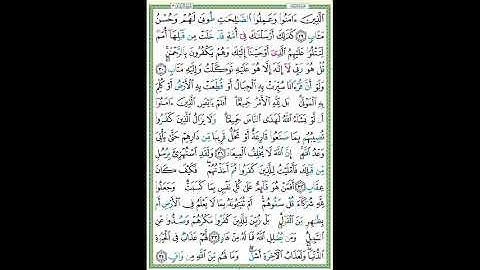 ٱلَّذِينَ ءَامَنُوا۟ وَعَمِلُوا۟ ٱلصَّٰلِحَٰتِ طُوبَىٰ لَهُمْ وَحُسْنُ
مَـَٔابٍ ٢٩ كَذَٰلِكَ أَرْسَلْنَٰكَ فِىٓ أُمَّةٍ قَدْ خَلَتْ مِن قَبْلِهَآ أُمَمٌ
لِّتَتْلُوَا۟ عَلَيْهِمُ ٱلَّذِىٓ أَوْحَيْنَآ إِلَيْكَ وَهُمْ يَكْفُرُونَ بِٱلرَّحْمَٰنِ
قُلْ هُوَ رَبِّى لَآ إِلَٰهَ إِلَّا هُوَ عَلَيْهِ تَوَكَّلْتُ وَإِلَيْهِ مَتَابِ ٣٠
وَلَوْ أَنَّ قُرْءَانًا سُيِّرَتْ بِهِ ٱلْجِبَالُ أَوْ قُطِّعَتْ بِهِ ٱلْأَرْضُ أَوْ كُلِّمَ
بِهِ ٱلْمَوْتَىٰ بَل لِّلَّهِ ٱلْأَمْرُ جَمِيعًا أَفَلَمْ يَا۟يْـَٔسِ ٱلَّذِينَ ءَامَنُوٓا۟
أَن لَّوْ يَشَآءُ ٱللَّهُ لَهَدَى ٱلنَّاسَ جَمِيعًا وَلَا يَزَالُ ٱلَّذِينَ كَفَرُوا۟
تُصِيبُهُم بِمَا صَنَعُوا۟ قَارِعَةٌ أَوْ تَحُلُّ قَرِيبًا مِّن دَارِهِمْ حَتَّىٰ يَأْتِىَ
وَعْدُ ٱللَّهِ إِنَّ ٱللَّهَ لَا يُخْلِفُ ٱلْمِيعَادَ ٣١ وَلَقَدِ ٱسْتُهْزِئَ بِرُسُلٍ
مِّن قَبْلِكَ فَأَمْلَيْتُ لِلَّذِينَ كَفَرُوا۟ ثُمَّ أَخَذْتُهُمْ فَكَيْفَ كَانَ
عِقَابِ ٣٢ أَفَمَنْ هُوَ قَآئِمٌ عَلَىٰ كُلِّ نَفْسٍۭ بِمَا كَسَبَتْ وَجَعَلُوا۟
لِلَّهِ شُرَكَآءَ قُلْ سَمُّوهُمْ أَمْ تُنَبِّـُٔونَهُۥ بِمَا لَا يَعْلَمُ فِى ٱلْأَرْضِ أَم
بِظَٰهِرٍ مِّنَ ٱلْقَوْلِ بَلْ زُيِّنَ لِلَّذِينَ كَفَرُوا۟ مَكْرُهُمْ وَصُدُّوا۟ عَنِ
ٱلسَّبِيلِ وَمَن يُضْلِلِ ٱللَّهُ فَمَا لَهُۥ مِنْ هَادٍ ٣٣ لَّهُمْ عَذَابٌ فِى ٱلْحَيَوٰةِ
ٱلدُّنْيَا وَلَعَذَابُ ٱلْءَاخِرَةِ أَشَقُّ وَمَا لَهُم مِّنَ ٱللَّهِ مِن وَاقٍ ٣٤